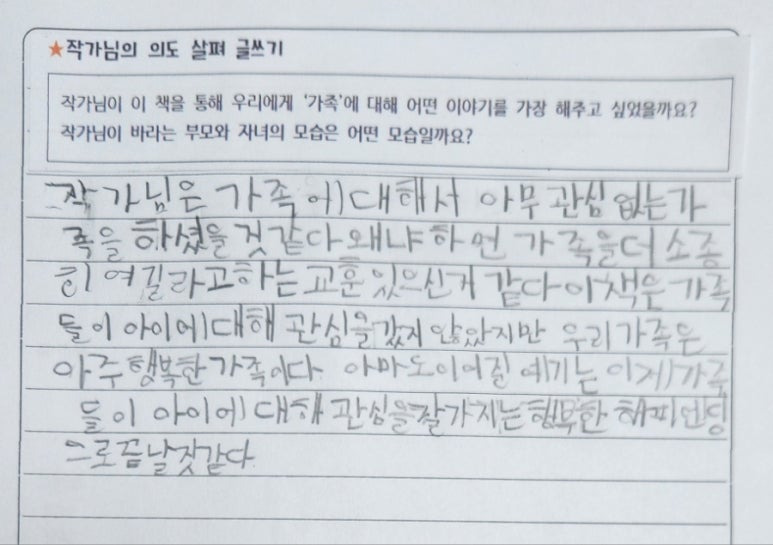 ★작가님의 의도 살펴 글쓰기
작가님이 이 책을 통해 우리에게 '가족'에 대해 어떤 이야기를 가장 해주고 싶었을까요?
작가님이 바라는 부모와 자녀의 모습은 어떤 모습일까요?
작가님은 가족에대해서 아무관심없는가
족을 하셨을것같다 왜냐하면 가족을더소중
히 여길라고하는교훈있으신거 같다이책은가족
들이 아이에대해 관심을갔지않았지만 우리가족은
아주행복한가족이다 아마도이어질 얘기는이제가족
들이 아이에대해관심을잘가지는행복한해피엔딩
으로끝날것같다